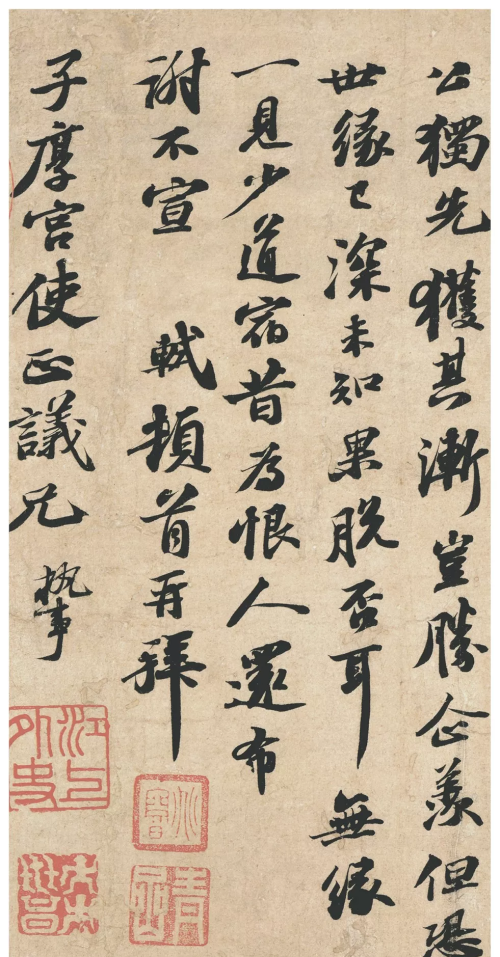 公獨先獲其漸豈勝企羨但恐
世緣已深未知果脫否耳無緣
一見少道宿昔為恨人還布
謝不宣 軾頓首再拜
子厚宮使正議兄執事
江上外史